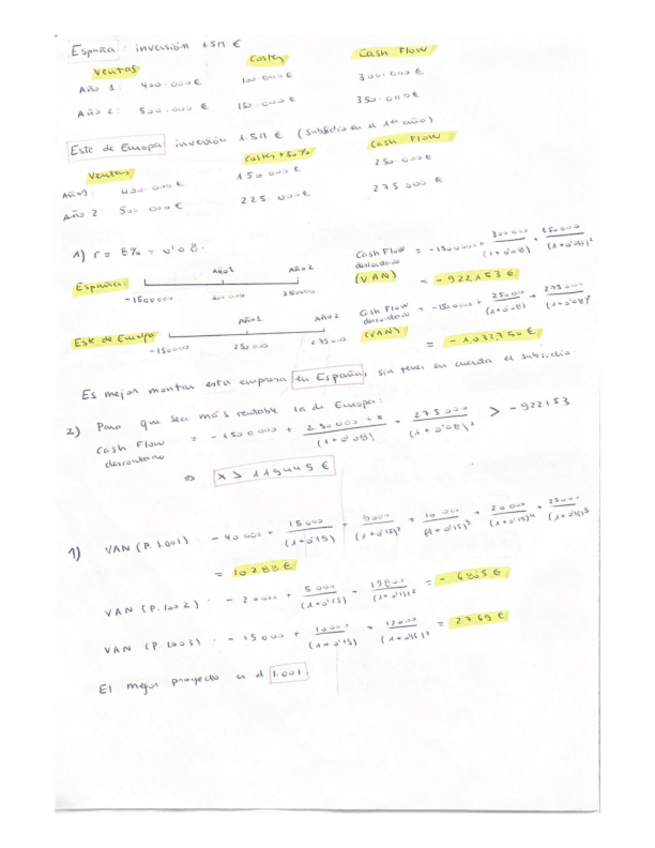 España: inversión 1.5M €
Ventas Costes Cash Flow
Año 1: 400.000€ 100.000€ 300.000€
Año 2: 500.000€ 150.000€ 350.000€
Este de Europa: inversión 1.5M € (subsidio en el 1er año)
Ventas Costes +50% Cash Flow
Año 1: 400.000€ 150 000€ 250.000€
Año 2: 500 000€ 225 000€ 275 000€
1) r = 8% = 0'08.
España: Año 1 Año 2
-1500000 300000 350000
Cash Flow descontado (VAN) = -1500000 + 300000/(1+0'08) + 350000/(1+0'08)²
= -922153€
Este de Europa Año 1 Año 2
-150000 250000 275000
Cash Flow descontado (VAN) = -150000 + 250000/(1+0'08) + 275000/(1+0'08)²
= -1.032,750€
Es mejor montar esta empresa en España, sin tener en cuenta el subsidio.
2) Para que sea más rentable la de Europa:
Cash Flow descontado = -1500000 + 250000+x/(1+0'08) + 275000/(1+0'08)² > -922153
⇒ x > 119445€
1) VAN (P.1001): -40000 + 15000/(1+0'15) + 9000/(1+0'15)² + 10000/(1+0'15)³ + 20000/(1+0'15)⁴ + 25000/(1+0'15)⁵
= 10288€
VAN (P.1002): -20000 + 5000/(1+0'15) + 19800/(1+0'15)² = -6805€
VAN (P.1003): -15000 + 10000/(1+0'15) + 12000/(1+0'15)² = 2769€
El mejor proyecto es el 1.001